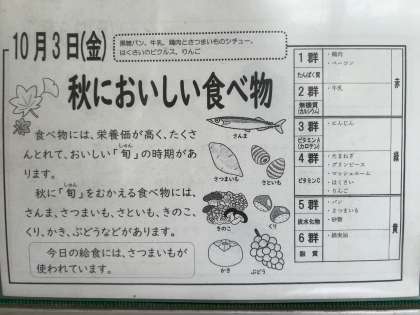 10月3日(金)
黒糖パン、牛乳、鶏肉とさつまいものシチュー、
はくさいのピクルス、りんご
秋においしい食べ物
食べ物には、栄養価が高く、たくさ
んとれて、おいしい「旬」の時期があ
しゅん
ります。
秋に「旬」をむかえる食べ物には、
しゅん
さんま、さつまいも、さといも、きのこ、
くり、かき、ぶどうなどがあります。
今日の給食には、さつまいもが
使われています。
さんま
さつまいも
さといも
きのこ
くり
かき
ぶどう
1群
たんぱく質
・鶏肉
・ベーコン
2群
無機質
(カルシウム)
・牛乳
赤
3群
ビタミンA
(カロテン)
・にんじん
4群
ビタミンC
・たまねぎ
・グリンピース
・マッシュルーム
・はくさい
・りんご
緑
5群
炭水化物
・パン
・さつまいも
・砂糖
6群
脂質
黄